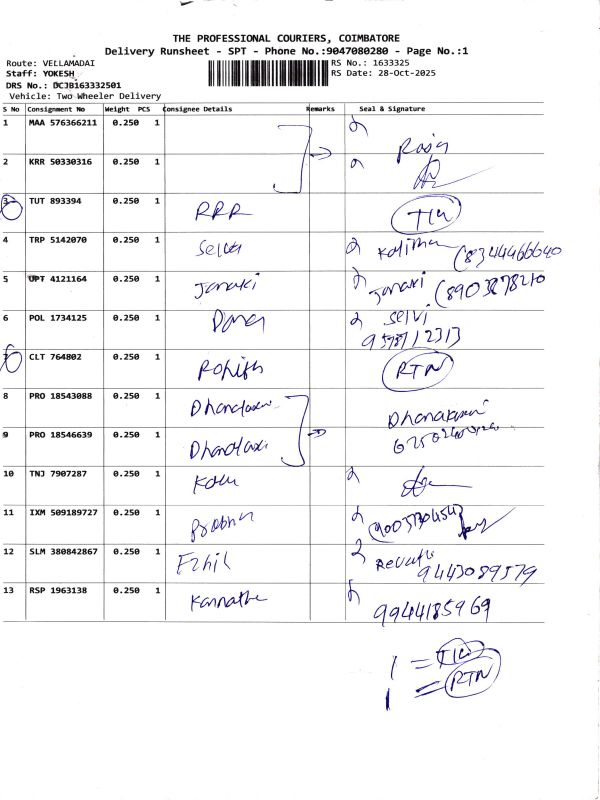 THE PROFESSIONAL COURIERS, COIMBATORE
Delivery Runsheet - SPT - Phone No.:9047080280 - Page No.:1
Route: VELLAMADAI RS No.: 1633325
Staff: YOKESH RS Date: 28-Oct-2025
DRS No.: DCJB163332501
Vehicle: Two Wheeler Delivery
S No Consignment No Weight PCS Consignee Details Remarks Seal & Signature
1 MAA 576366211 0.250 1
2 KRR 50330316 0.250 1
3 TUT 893394 0.250 1 RRR
4 TRP 5142070 0.250 1 Selva (8344466640
5 UPT 4121164 0.250 1 Janaki Janaki (8903278210
6 POL 1734125 0.250 1 Selvi
7 CLT 764802 0.250 1 Rohith RTN
8 PRO 18543088 0.250 1
9 PRO 18546639 0.250 1
10 TNJ 7907287 0.250 1
11 IXM 509189727 0.250 1 Prabhu
12 SLM 380842867 0.250 1 Ezhil Revathi 9443089579
13 RSP 1963138 0.250 1 9944185969
1 =
1 = RTN